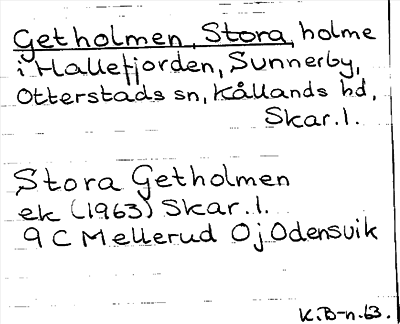 Getholmen, Stora, holme
i Hallefjorden, Sunnerby,
Otterstads sn, Kållands hd,
Skar.l.
Stora Getholmen
ek (1963) Skar.l.
9 C Mellerud O j Odensvik
K.B-n.63.